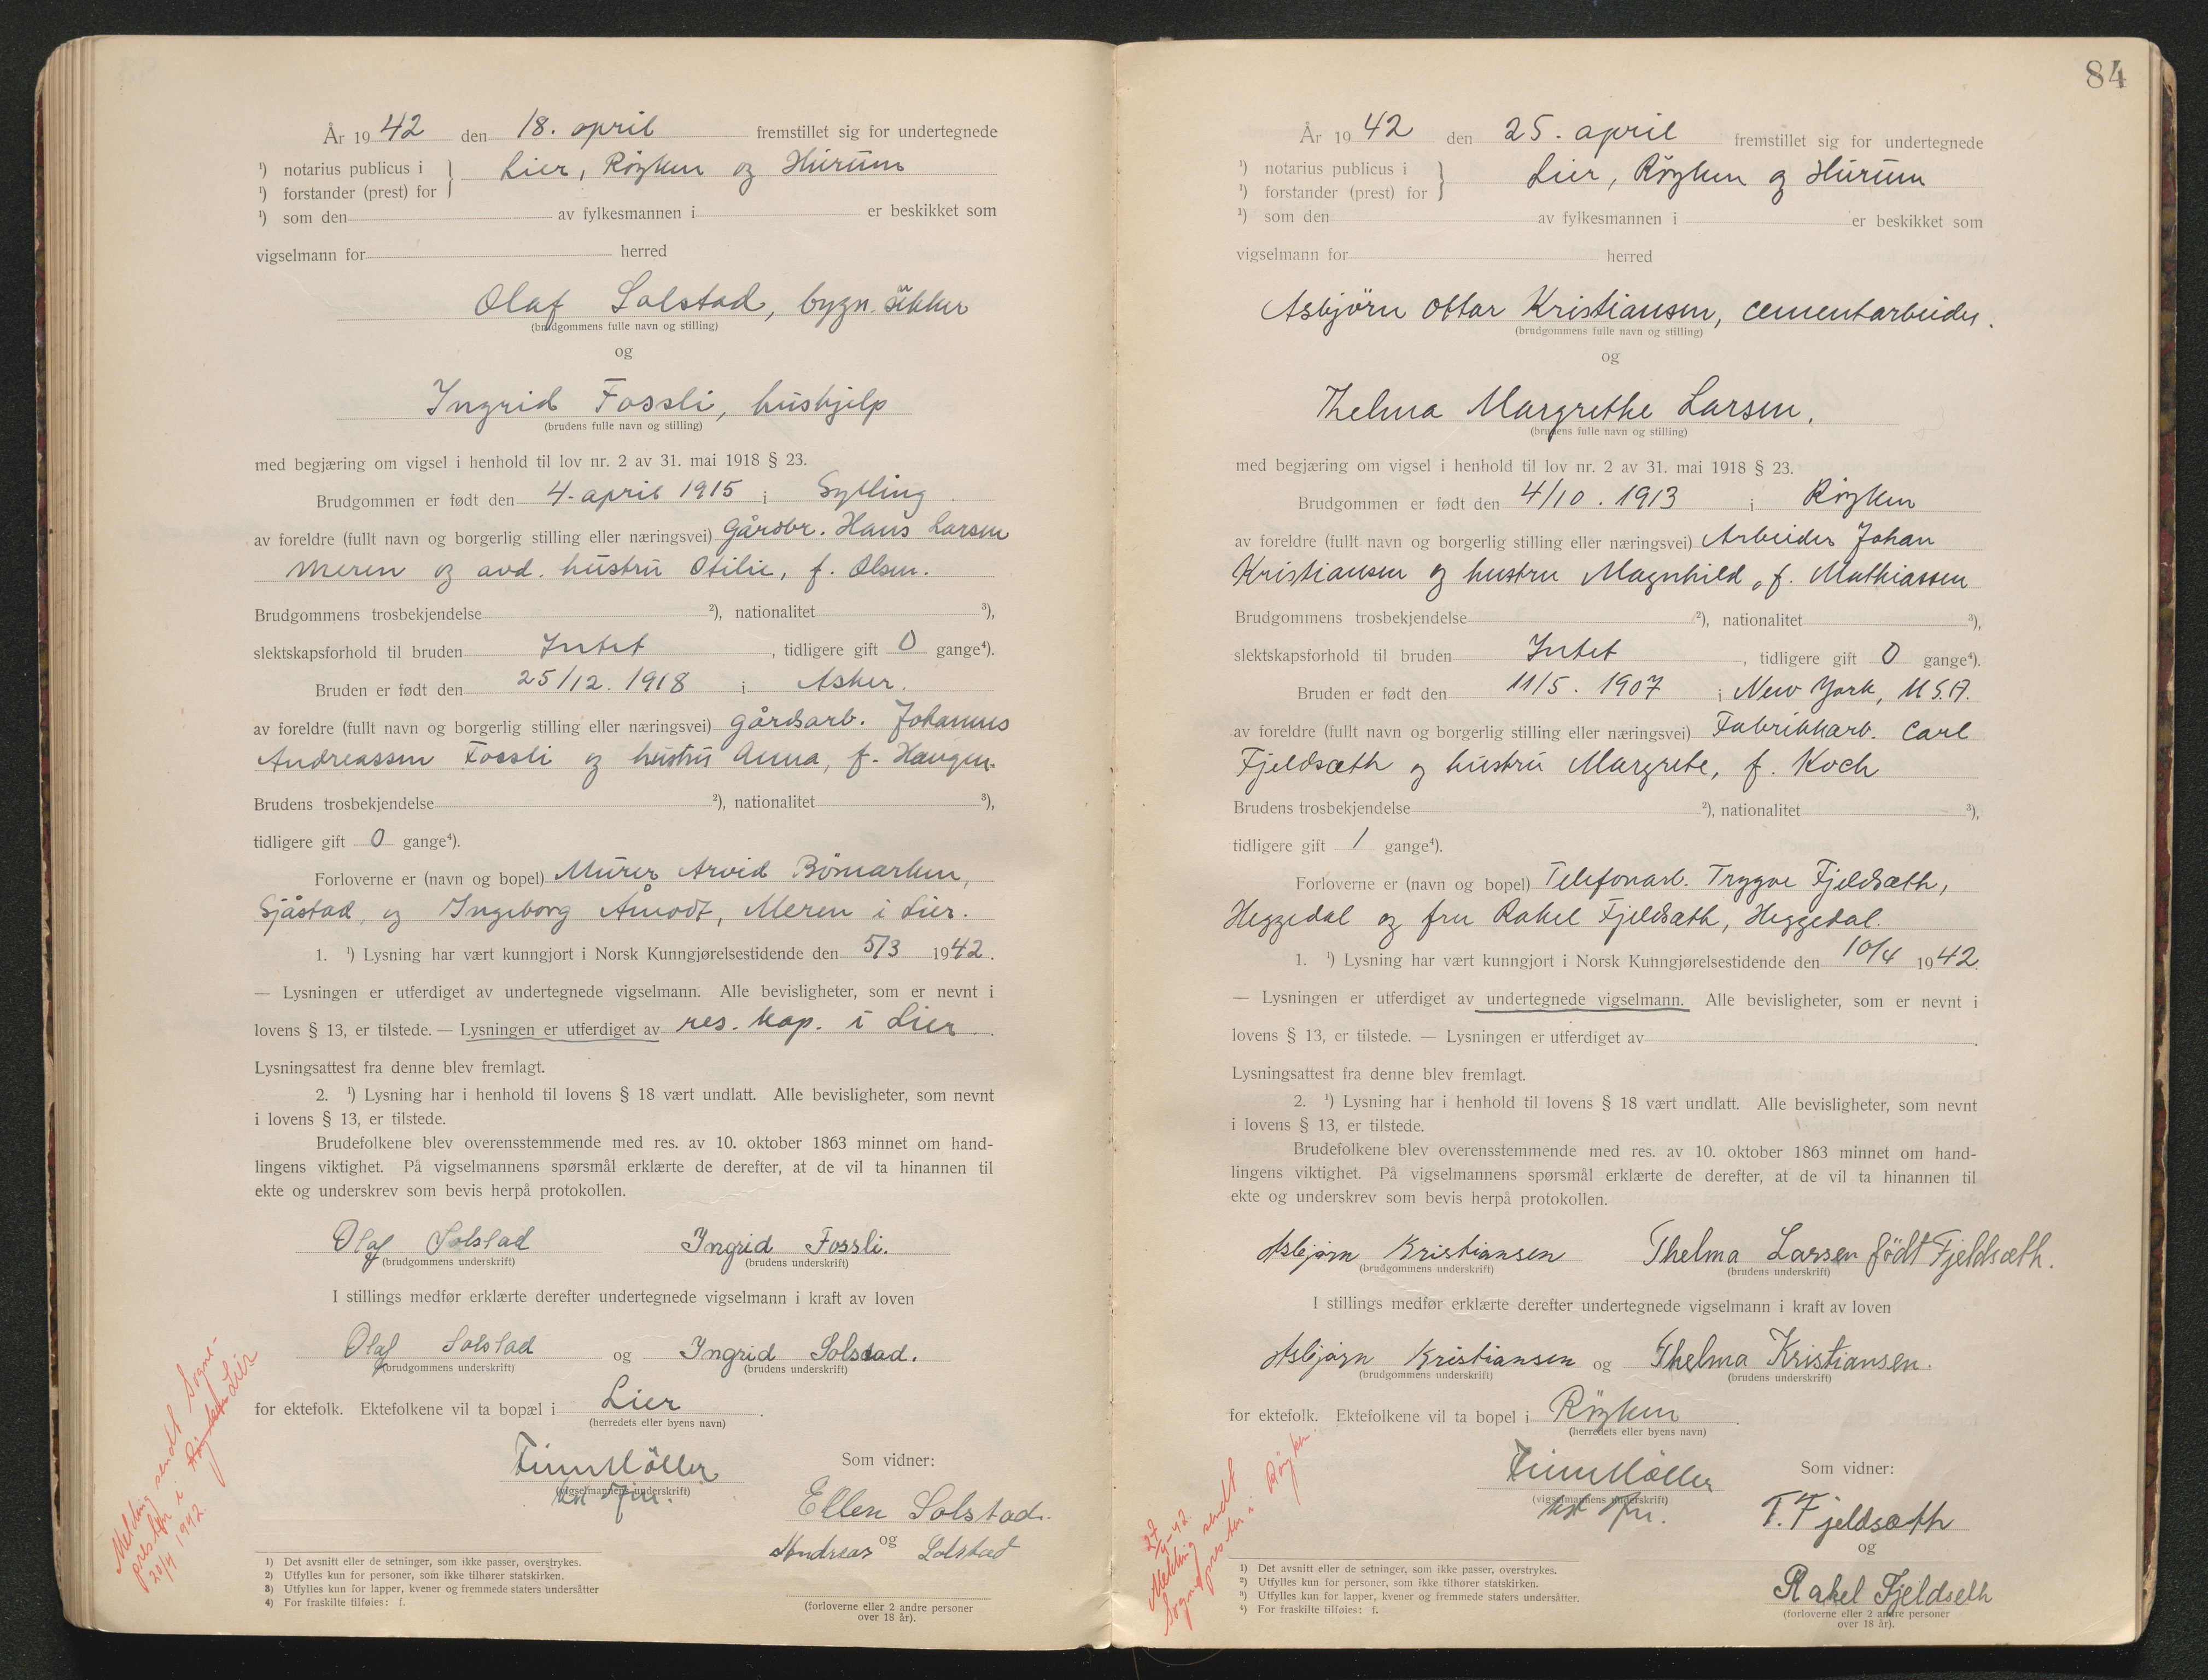 År 1942 den 18. april fremstillet sig for undertegnede
¹) notarius publicus i } Lier, Røyken og Hurum
¹) forstander (prest) for
¹) som den av fylkesmannen i er beskikket som
vigselmann for herred
Olaf Solstad, bygn.
(brudgommens fulle navn og stilling)
og
Ingrid Fossli, hushjelp
(brudens fulle navn og stilling)
med begjæring om vigsel i henhold til lov nr. 2 av 31. mai 1918 § 23.
Brudgommen er født den 4. april 1915 i Sylling.
av foreldre (fullt navn og borgerlig stilling eller næringsvei) gårdbr. Hans Larsen
Meren og avd. hustru Otilie, f. Olsen.
Brudgommens trosbekjendelse ²), nationalitet ³),
slektskapsforhold til bruden Intet, tidligere gift 0 gange⁴).
Bruden er født den 25/12. 1918 i Asker.
av foreldre (fullt navn og borgerlig stilling eller næringsvei) gårdsarb. Johannes
Andreassen Fossli og hustru Anna, f. Haugen.
Brudens trosbekjendelse ²), nationalitet ³),
tidligere gift 0 gange⁴).
Forloverne er (navn og bopel) Murer Arvid Bömarken,
Sjåstad, og Ingeborg Åmodt, Meren i Lier.
1. ¹) Lysning har vært kunngjort i Norsk Kunngjørelsestidende den 5/3 1942.
— Lysningen er utferdiget av undertegnede vigselmann. Alle bevisligheter, som er nevnt i
lovens § 13, er tilstede. — Lysningen er utferdiget av res. kap. i Lier
Lysningsattest fra denne blev fremlagt.
2. ¹) Lysning har i henhold til lovens § 18 vært undlatt. Alle bevisligheter, som nevnt
i lovens § 13, er tilstede.
Brudefolkene blev overensstemmende med res. av 10. oktober 1863 minnet om hand-
lingens viktighet. På vigselmannens spørsmål erklærte de derefter, at de vil ta hinannen til
ekte og underskrev som bevis herpå protokollen.
Olaf Solstad Ingrid Fossli.
(brudgommens underskrift) (brudens underskrift)
I stillings medfør erklærte derefter undertegnede vigselmann i kraft av loven
Olaf Solstad og Ingrid Solstad.
(brudgommens underskrift) (brudens underskrift)
for ektefolk. Ektefolkene vil ta bopæl i Lier.
(herredets eller byens navn)
Finn Möller Som vidner:
(vigselmannens underskrift)
Ellen Solstad.
og
Andreas Solstad
(forloverne eller 2 andre personer
over 18 år).
Melding sendt Sogne-
presten i Røyken Lier
20/4 1942.
1) Det avsnitt eller de setninger, som ikke passer, overstrykes.
2) Utfylles kun for personer, som ikke tilhører statskirken.
3) Utfylles kun for lapper, kvener og fremmede staters undersåtter
4) For fraskilte tilføies: f.
84
År 1942 den 25. april fremstillet sig for undertegnede
¹) notarius publicus i } Lier, Røyken og Hurum
¹) forstander (prest) for
¹) som den av fylkesmannen i er beskikket som
vigselmann for herred
Asbjörn Ottar Kristiansen, cementarbeider.
(brudgommens fulle navn og stilling)
og
Thelma Margrethe Larsen.
(brudens fulle navn og stilling)
med begjæring om vigsel i henhold til lov nr. 2 av 31. mai 1918 § 23.
Brudgommen er født den 4/10. 1913 i Røyken
av foreldre (fullt navn og borgerlig stilling eller næringsvei) Arbeider Johan
Kristiansen og hustru Magnhild, f. Mathiassen
Brudgommens trosbekjendelse ²), nationalitet ³),
slektskapsforhold til bruden Intet, tidligere gift 0 gange⁴).
Bruden er født den 11/5. 1907 i New York, U.S.A.
av foreldre (fullt navn og borgerlig stilling eller næringsvei) Fabrikkarb. Carl
Fjeldsæth og hustru Margrete, f. Koch
Brudens trosbekjendelse ²), nationalitet ³),
tidligere gift 1 gange⁴).
Forloverne er (navn og bopel) Telefonarb. Trygve Fjeldsæth,
Heggedal og fru Rakel Fjeldsæth, Heggedal.
1. ¹) Lysning har vært kunngjort i Norsk Kunngjørelsestidende den 10/4 1942.
— Lysningen er utferdiget av undertegnede vigselmann. Alle bevisligheter, som er nevnt i
lovens § 13, er tilstede. — Lysningen er utferdiget av .
Lysningsattest fra denne blev fremlagt.
2. ¹) Lysning har i henhold til lovens § 18 vært undlatt. Alle bevisligheter, som nevnt
i lovens § 13, er tilstede.
Brudefolkene blev overensstemmende med res. av 10. oktober 1863 minnet om hand-
lingens viktighet. På vigselmannens spørsmål erklærte de derefter, at de vil ta hinannen til
ekte og underskrev som bevis herpå protokollen.
Asbjørn Kristiansen Thelma Larsen født Fjeldsæth.
(brudgommens underskrift) (brudens underskrift)
I stillings medfør erklærte derefter undertegnede vigselmann i kraft av loven
Asbjørn Kristiansen og Thelma Kristiansen.
(brudgommens underskrift) (brudens underskrift)
for ektefolk. Ektefolkene vil ta bopel i Röyken.
(herredets eller byens navn)
Finn Möller Som vidner:
(vigselmannens underskrift)
T. Fjeldsæth
og
Rakel Fjeldseth
(forloverne eller 2 andre personer
over 18 år).
27/4-42.
Melding sendt
Sognepresten i Røyken.
¹) Det avsnitt eller de setninger, som ikke passer, overstrykes.
²) Utfylles kun for personer, som ikke tilhører statskirken.
³) Utfylles kun for lapper, kvener og fremmede staters undersåtter.
⁴) For fraskilte tilføies: f.